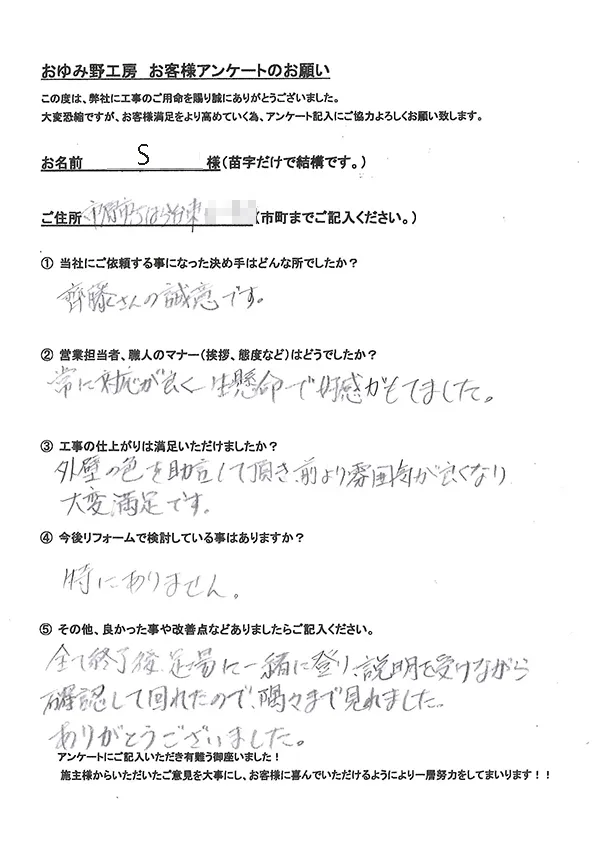 おゆみ野工房 お客様アンケートのお願い
この度は、弊社に工事のご用命を賜り誠にありがとうございました。
大変恐縮ですが、お客様満足をより高めていく為、アンケート記入にご協力よろしくお願い致します。
お名前 S 様(苗字だけで結構です。)
ご住所 市原市ちはら台東 (市町までご記入ください。)
① 当社にご依頼する事になった決め手はどんな所でしたか?
齊藤さんの誠意です。
② 営業担当者、職人のマナー(挨拶、態度など)はどうでしたか?
常に対応が良く一生懸命で好感がもてました。
③ 工事の仕上がりは満足いただけましたか?
外壁の色を助言して頂き、前より雰囲気が良くなり
大変満足です。
④ 今後リフォームで検討している事はありますか?
時にありません。
⑤ その他、良かった事や改善点などありましたらご記入ください。
全て終了後、足場に一緒に登り、説明を受けながら
確認して回れたので、隅々まで見れました。
ありがとうございました。
アンケートにご記入いただき有難う御座いました!
施主様からいただいたご意見を大事にし、お客様に喜んでいただけるようにより一層努力をしてまいります!!